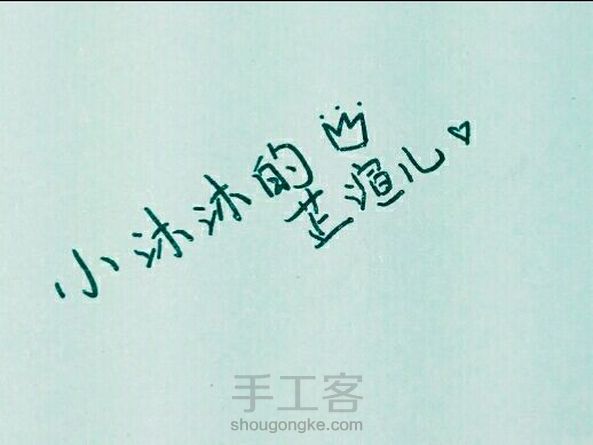 小沐沐的
芷渲儿
手工客
shougongke.com